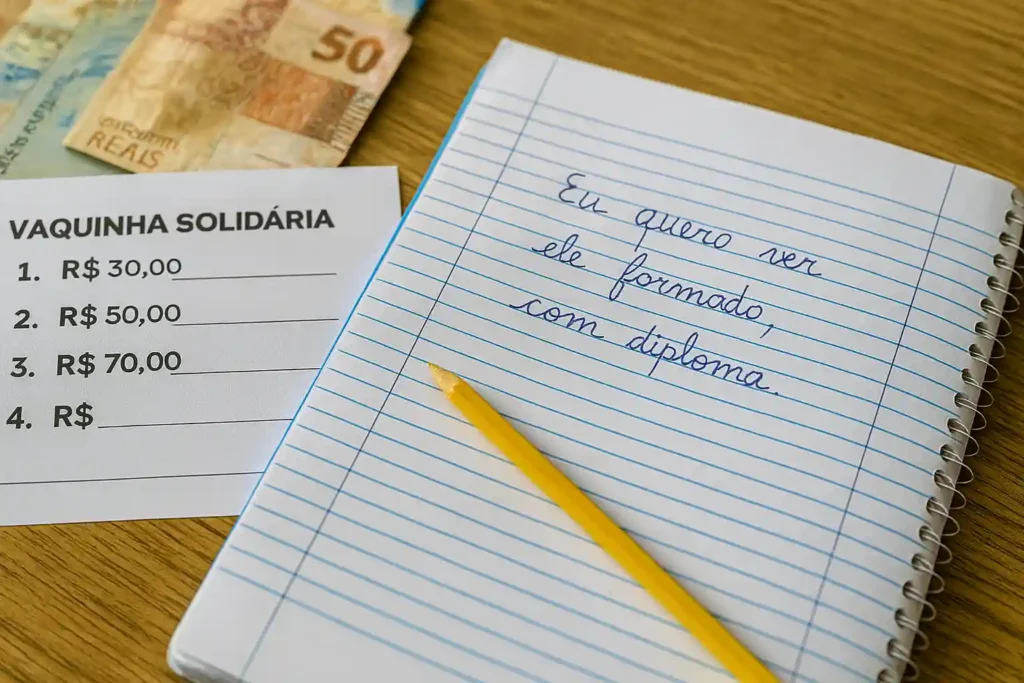 50
REAIS
VAQUINHA SOLIDÁRIA
1. R$ 30,00
2. R$ 50,00
3. R$ 70,00
4. R$
Eu quero ver
ele formado,
com diploma.